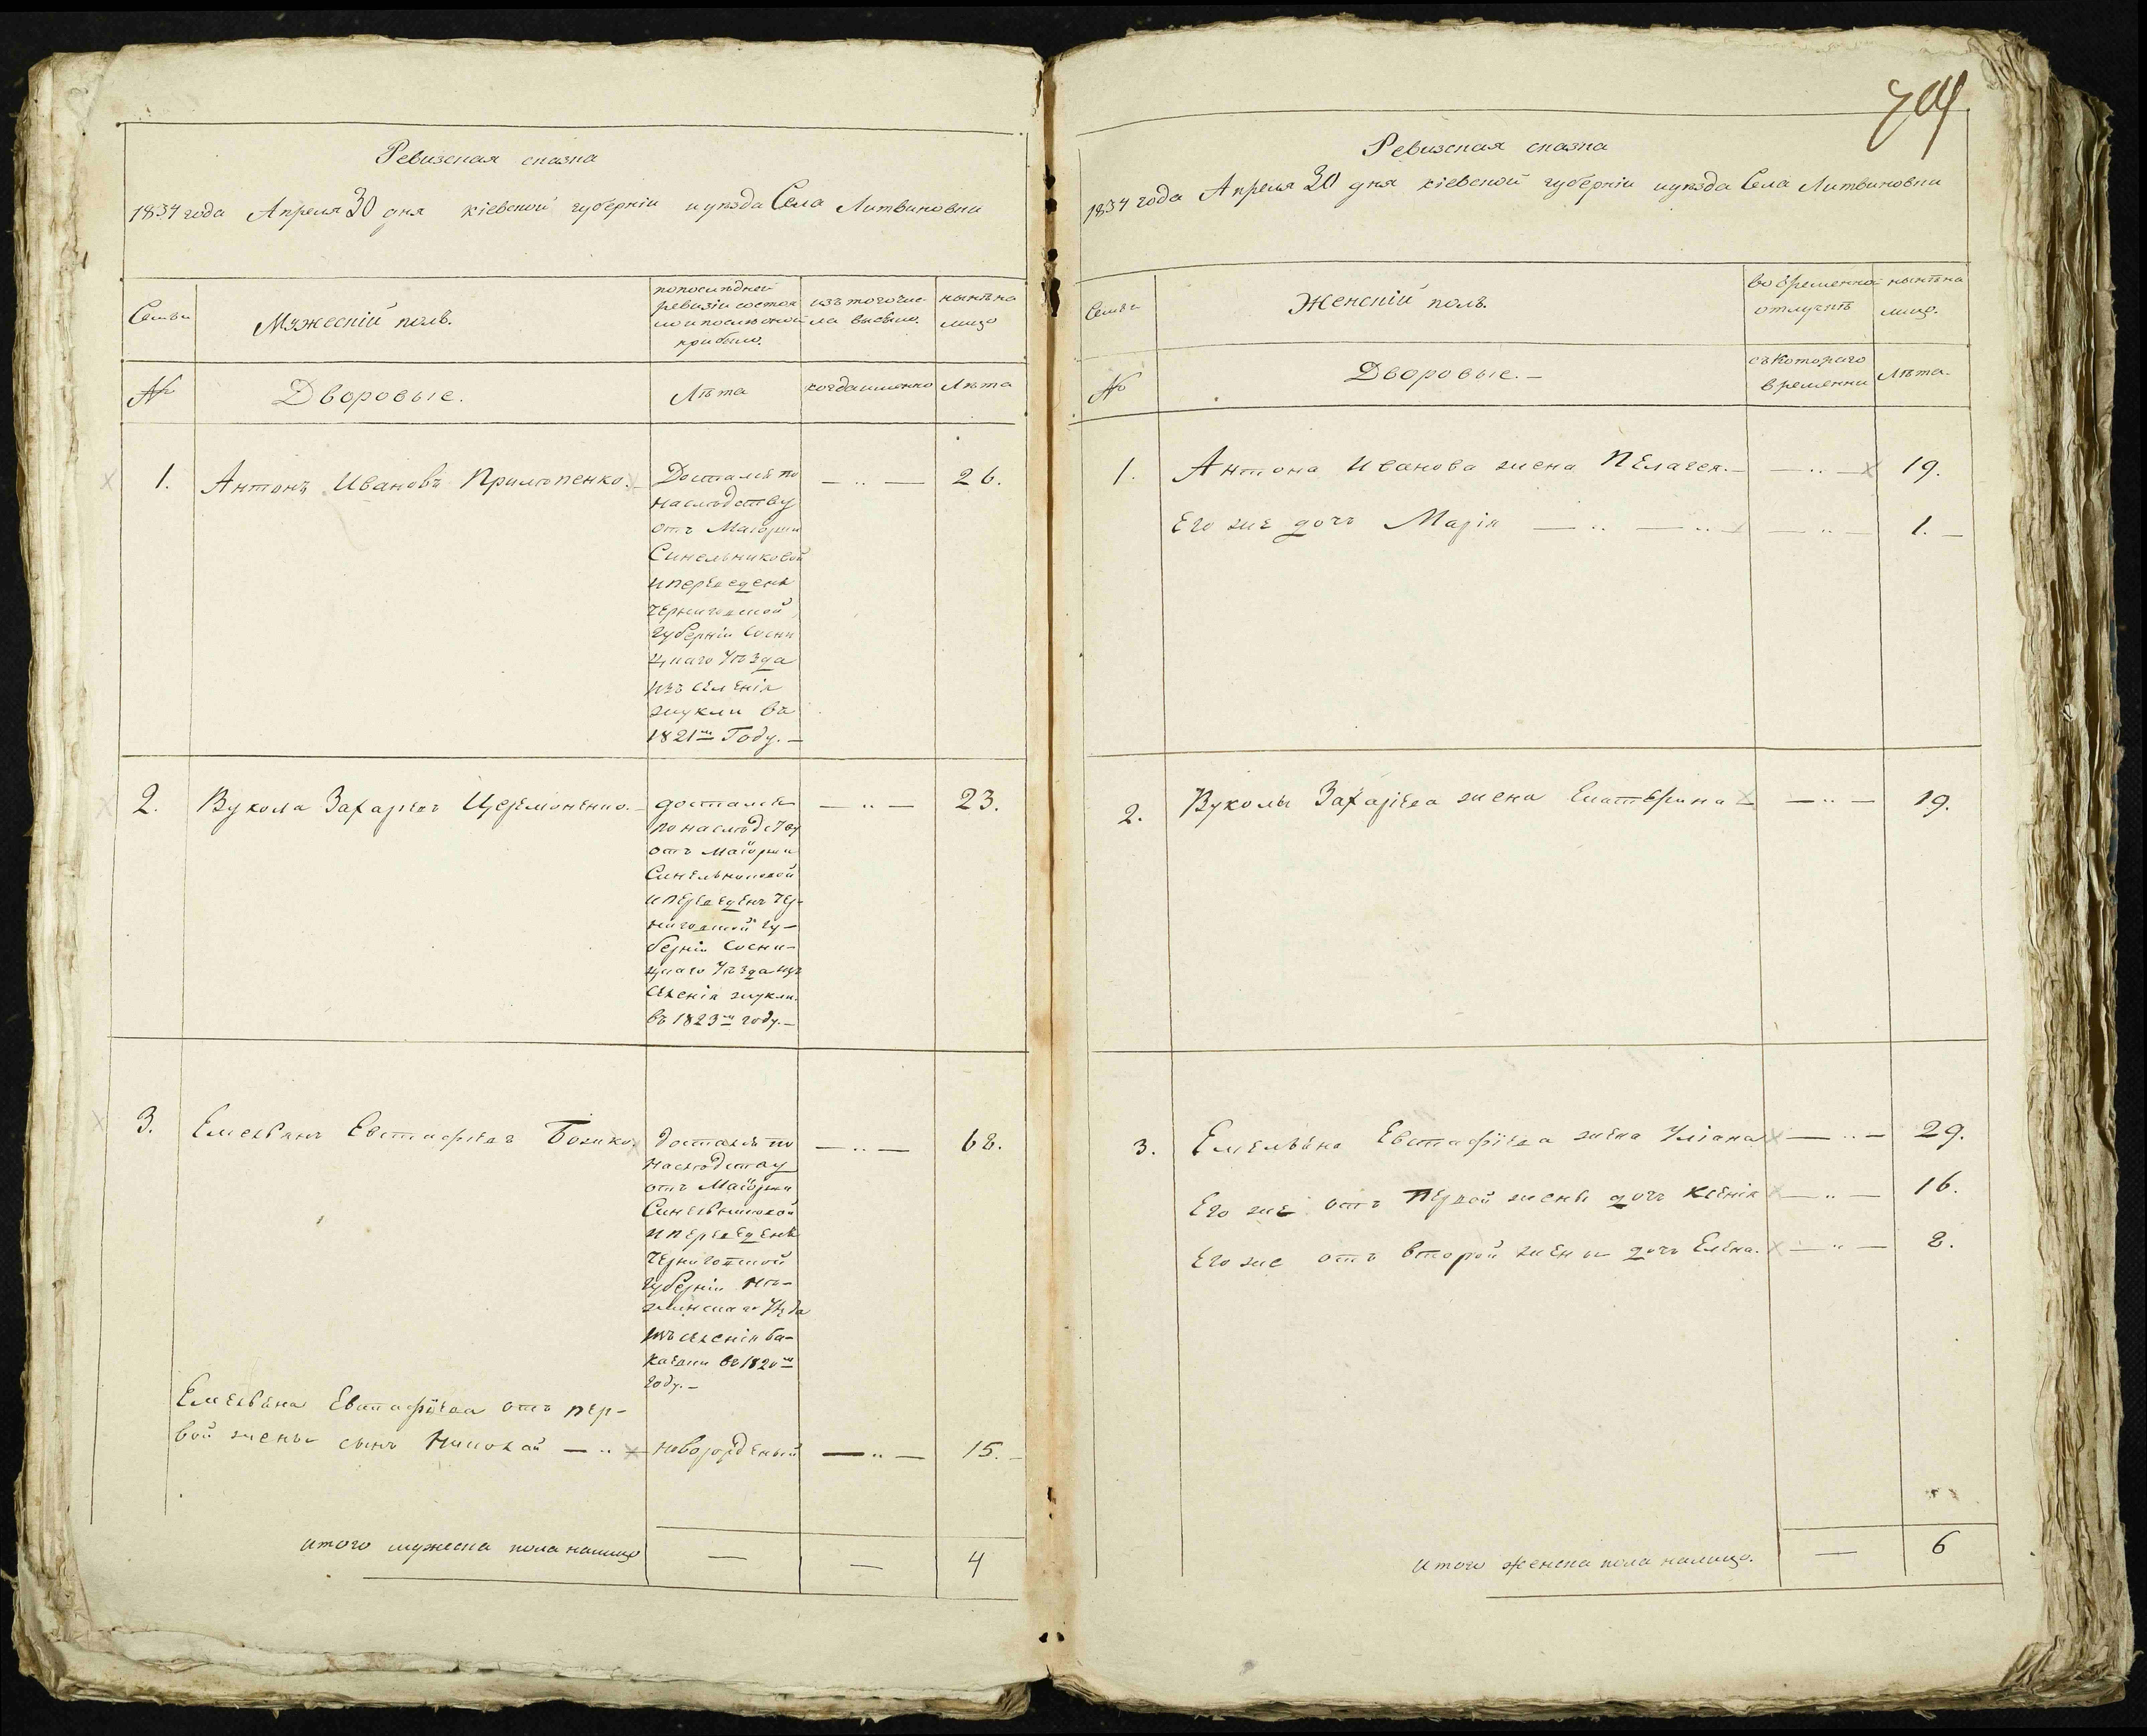 Ревизская сказка
1834 года Апреля 30 дня кіевской губерніи и уѣзда Села Литвиновки
Семьи
Мужескій полъ.
по послѣдней
ревизіи состоя
ло и послѣ оной
прибыло.
изъ того чис-
ла выбыло.
нынѣ на
лицо
№
Дворовые.
Лѣта
когда именно
Лѣта
1. Антонъ Ивановъ Прилюпенко.
Достался по
наслѣдству
отъ Маіорши
Синельниковой
и переведенъ
Черниговской
губерніи Сосни
цкаго Уѣзда
изъ селенія
жукли въ
1821мъ Году.—
— „ —
26.
2. Вукола Захарьевъ
достался
по наслѣдству
отъ Маіорши
Синельниковой
и переведенъ Чер-
ниговской гу-
берніи Сосни-
цкаго Уѣзда изъ
селенія жукли.
въ 1823мъ году.—
— „ —
23.
3. Емельянъ Евстафіевъ
достался по
наслѣдству
отъ Маіорши
Синельниковой
и переведенъ
Черниговской
губерніи Нѣ-
жинскаго Уѣзда
изъ селенія ба-
каевки въ 1820мъ
году.—
— „ —
68.
Емельяна Евстафіева отъ пер-
вой жены сынъ Николай — „ —
новорожденый
— „ —
15.—
итого мужеска пола налицо
—
—
4
Ревизская сказка
1834 года Апреля 30 дня кіевской губерніи и уѣзда Села Литвиновки
Семьи
Женскій полъ.
во временной
отлучкѣ
нынѣ на
лицо.
№
Дворовые.—
съ котораго
временни
Лѣта.
1. Антона Иванова жена Пелагея.— — „ — 19.
Его же дочь Марія — „ — „ — — „ — 1.—
2. Вуколы Захарьева жена Екатерина — — „ — 19.
3. Емельяна Евстафіева жена Уліана — „ — 29.
Его же отъ первой жены дочь Ксенія — „ — 16.
Его же отъ второй жены дочь Елена. — „ — 8.
итого женска пола налицо.
—
6